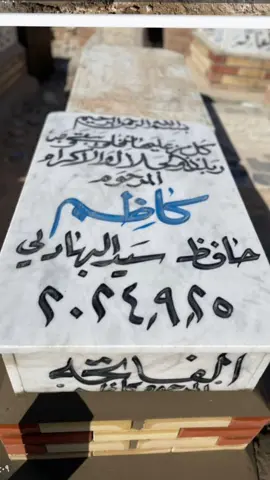 بسم الله الرحمن الرحيم
كل من عليها فان ويبقى وجه
ربك ذو الجلال والاكرام
المرحوم
كاظم
حافظ سيد البهادلي
٢٠٢٤،٩،٢٥
الفاتحة